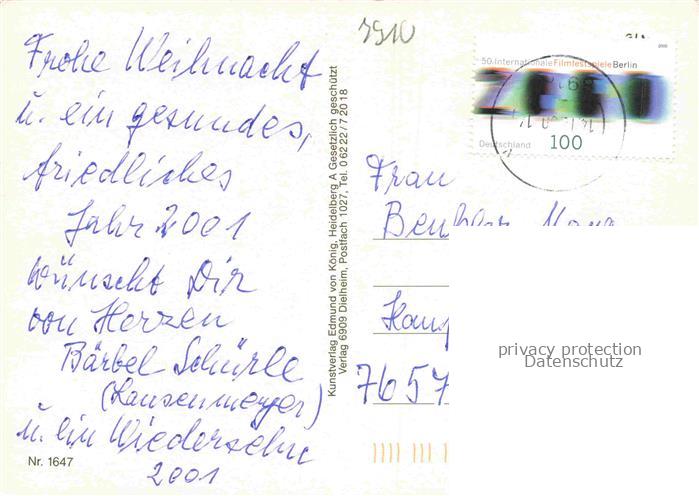 Frohe Weihnacht
u. ein gesundes,
friedliches
Jahr 2001
wünscht Dir
von Herzen
Bärbel Schürle
(Hansenmeyer)
u. ein Wiedersehn
2001
Nr. 1647
Kunstverlag Edmund von König, Heidelberg A Gesetzlich geschützt
Verlag 6909 Dielheim, Postfach 1027, Tel. 0 62 22 / 7 20 18
3910
50. Internationale Filmfestspiele Berlin
2000
Deutschland
100
Frau
7657
privacy protection
Datenschutz